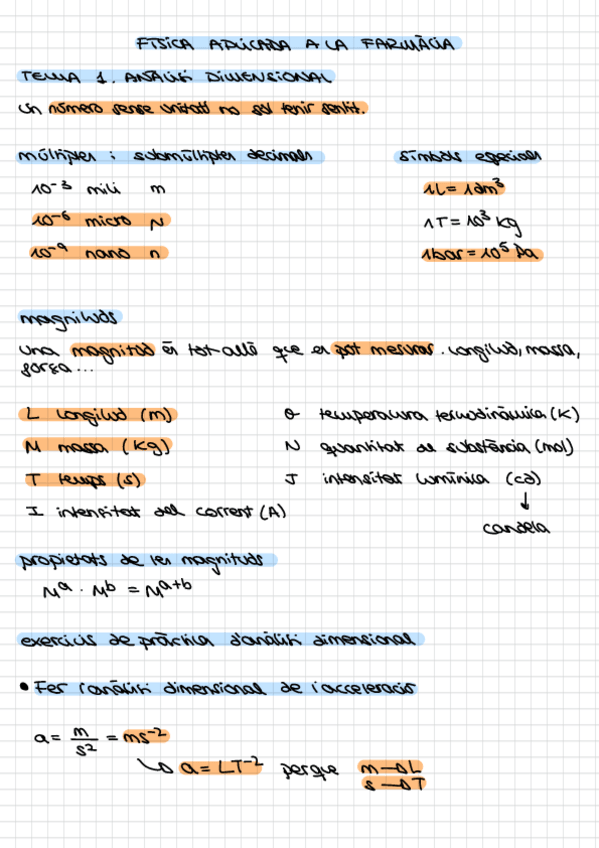 FÍSICA APLICADA A LA FARMÀCIA
TEMA 1. ANÀLISI DIMENSIONAL
Un número sense unitats no sol tenir sentit.
múltiples i submúltiples decimals
símbols especials
10⁻³ mili m
1L = 1dm³
10⁻⁶ micro μ
1T = 10³ kg
10⁻⁹ nano n
1bar = 10⁵ Pa
magnituds
una magnitud és tot allò que es pot mesurar. Longitud, massa,
força...
L longitud (m)
θ temperatura termodinàmica (K)
M massa (kg)
N quantitat de substància (mol)
T temps (s)
J intensitat lumínica (cd)
I intensitat del corrent (A)
↓
candela
propietats de les magnituds
Mᵃ · Mᵇ = Mᵃ⁺ᵇ
exercicis de pràctica d'anàlisi dimensional
• Fer l'anàlisi dimensional de l'acceleració
a = m/s² = ms⁻²
↳ a = LT⁻² perque m → L
s → T